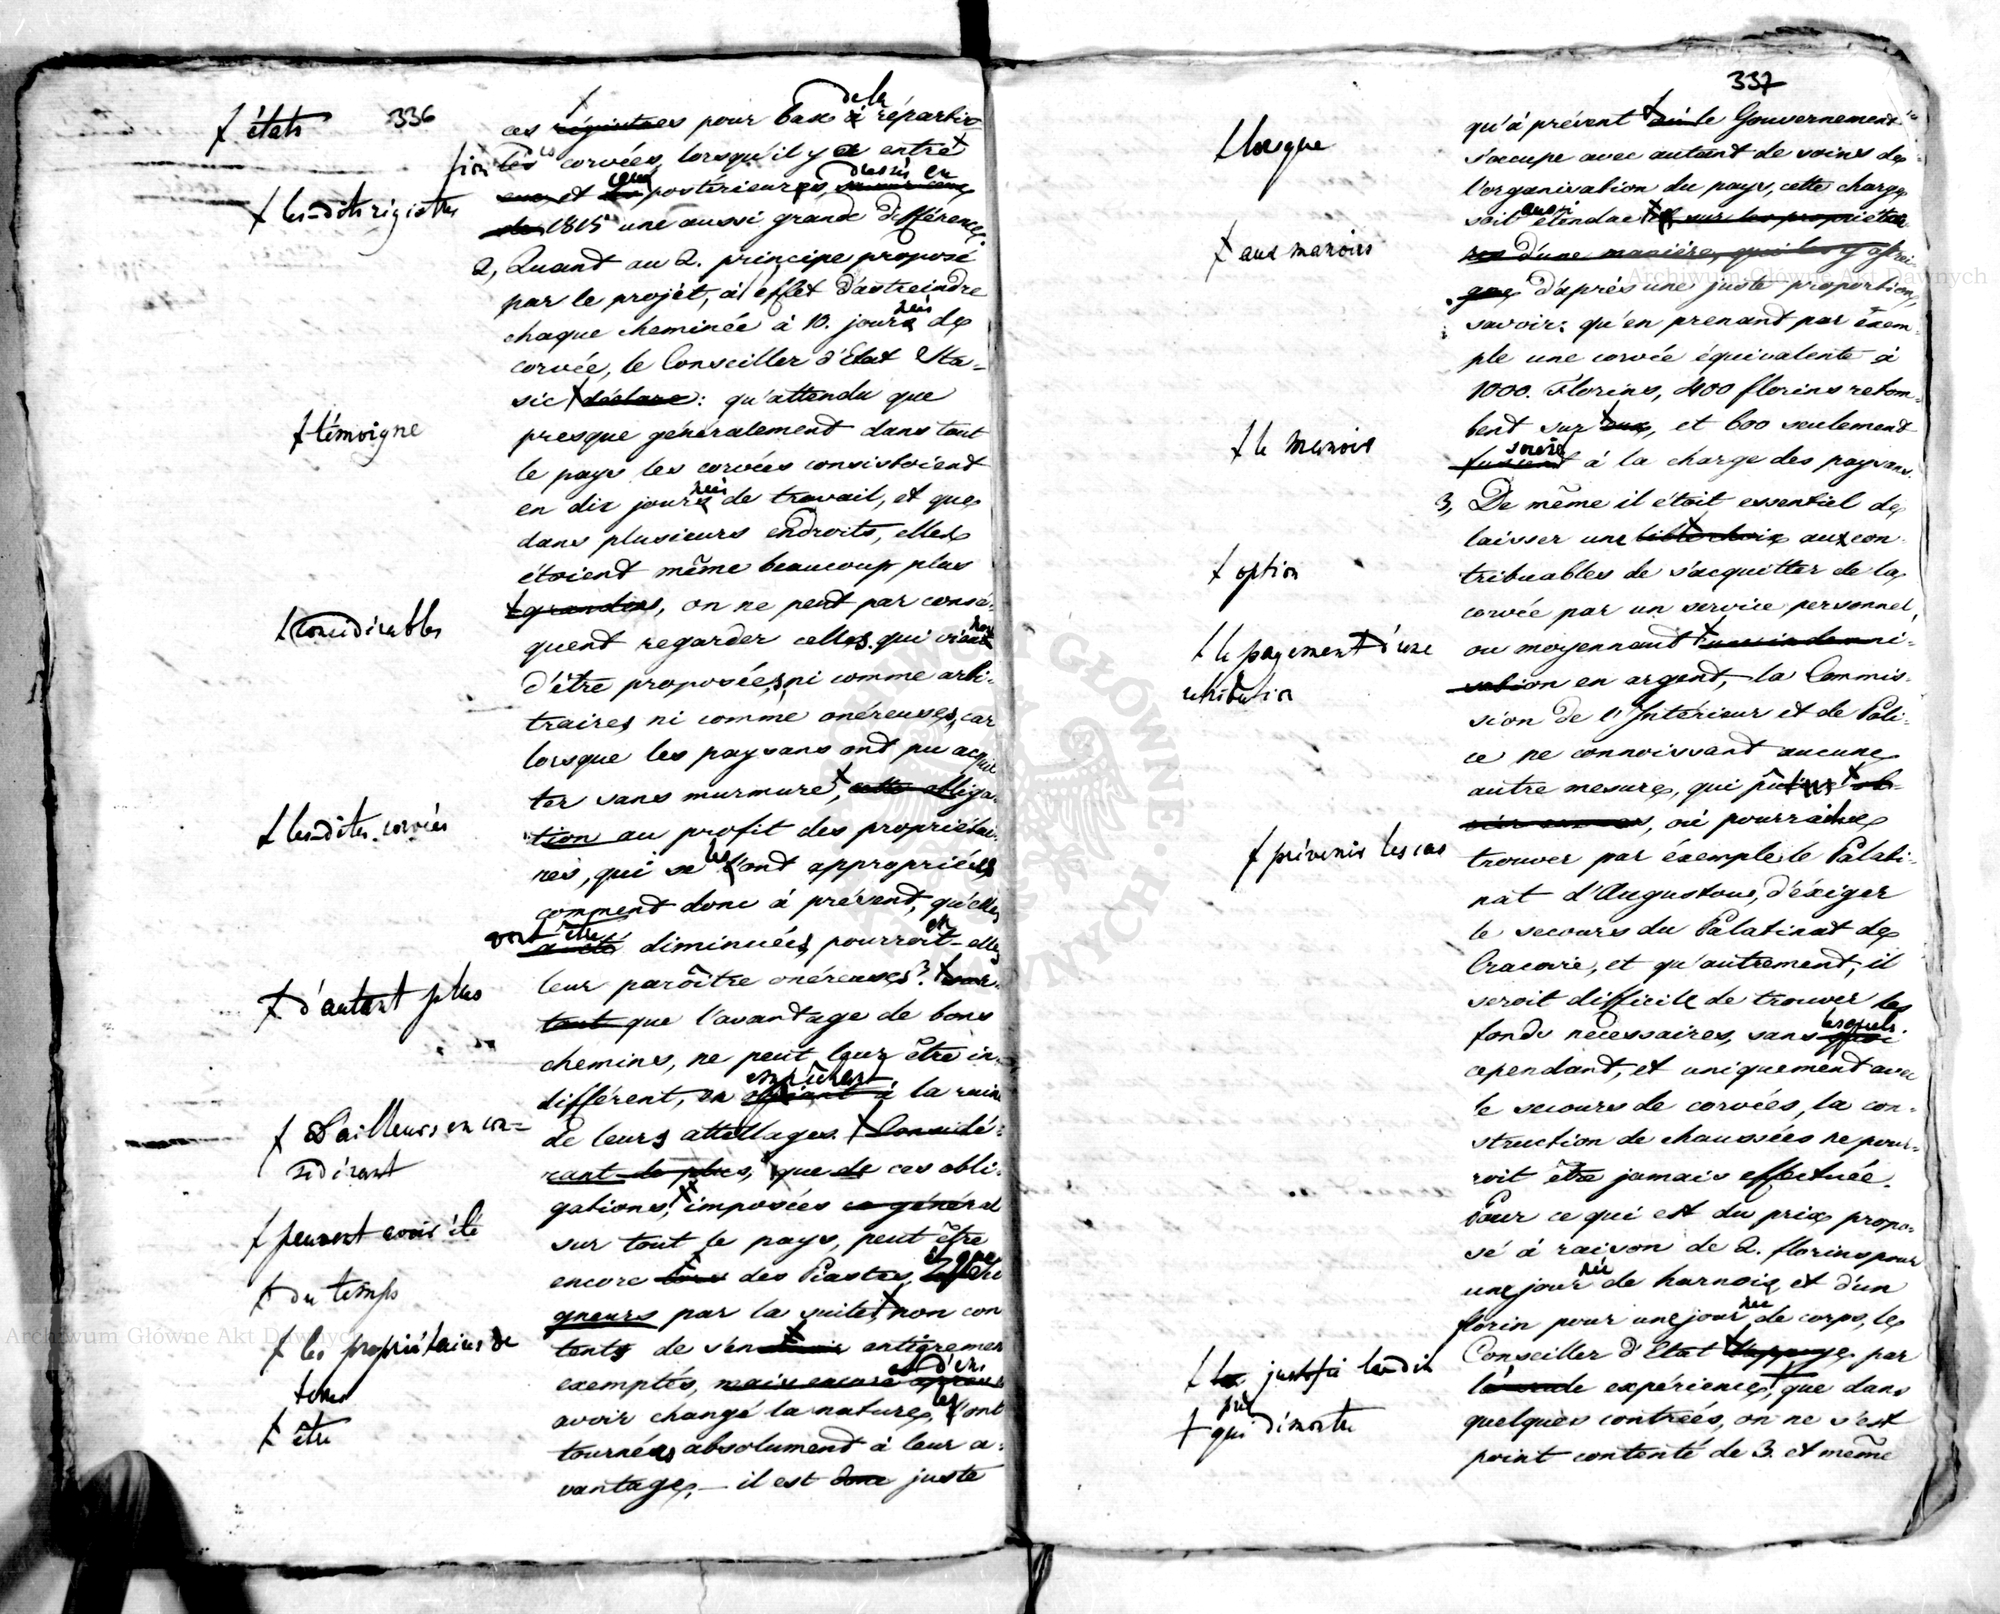 336
† états
† les-dits régistres
† témoigne
† considérables
† les-dites corvées
† d'autant plus
† D'ailleurs en con-
sidérant
† peuvent avoir été
† du temps
† les propriétaires de
terres
† être
ces régistres pour base à de la réparti-
tion les corvées, lorsqu'il y a entre
eux et les ceux postérieures, dressés en
de 1815 une aussi grande différence.
2, Quant au 2. principe proposé
par le projèt, à l'effèt d'astreindre
chaque cheminée à 10. journées de
corvée, le Conseiller d'Etat Sta-
sic † déclare: qu'attendu que
presque généralement dans tout
le pays les corvées consistoient
en dix journées de travail, et que
dans plusieurs endroits, elles
étoient même beaucoup plus
† grandes, on ne peut par consé-
quent regarder celles qui viennent
d'être proposées, ni comme arbi-
traires ni comme onéreuses, car
lorsque les paysans ont pu acquit-
ter sans murmure, † cette obliga-
tion au profit des propriétai-
res, qui se les l'ont appropriées
comment donc à présent, qu'elles
vont être diminuées, pourroient-elles
leur parôitre onéreuses? † d'au-
tant que l'avantage de bons
chemins, ne peut leur être in-
différent, en empêchant la ruine
de leurs attellages. † Considé-
rant de plus, que de ces obli-
gations, † imposées en général
sur tout le pays, peut être
encore † lors des Piastes, et que
gneurs par la suite, † non con
tents de s'en † entièrement
exemptés, mais encore d'en
avoir changé la nature, les l'ont
tournées absolument à leur a-
vantage, – il est donc juste
337
† lorsque
† aux manoirs
† le manoir
† option
† le payement d'une
rétribution
† prévenir les cas
† justifie landit
† qui démontre
qu'à présent † où le Gouvernement
s'occupe avec autant de soins de
l'organisation du pays, cette charge
soit aussi étendue † sur les propriétai-
res d'une manière, qui les y astrei-
gne d'après une juste proportion,
savoir: qu'en prenant par éxem-
ple une corvée équivalente à
1000. Florins, 400 florins retom-
bent sur † eux, et 600 seulement
soient à la charge des paysans.
3, De même il étoit essentiel de
laisser une † libre choix aux con-
tribuables de s'acquitter de la
corvée par un service personnel,
ou moyennant † une indemni-
sation en argent, la Commis-
sion de l'Intérieur et de Poli-
ce ne connoissant aucune
autre mesure, qui pût †
où pourroit se
trouver par éxemple le Palati-
nat d'Augustow, d'éxiger
le secours du Palatinat de
Cracovie, et qu'autrement, il
seroit difficile de trouver les
fonds nécessaires, sans lesquels
cependant, et uniquement avec
le secours de corvées, la con-
struction de chaussées ne pour-
roit être jamais effectuée.
Pour ce qui est du prix propo-
sé à raison de 2. florins pour
une journée de harnois, et d'un
florin pour une journée de corps, le
Conseiller d'Etat † l'appuye par
expérience, † que dans
quelques contrées, on ne s'est
point contenté de 3. et même
Archiwum Główne Akt Dawnych
Archiwum Główne Akt Dawnych